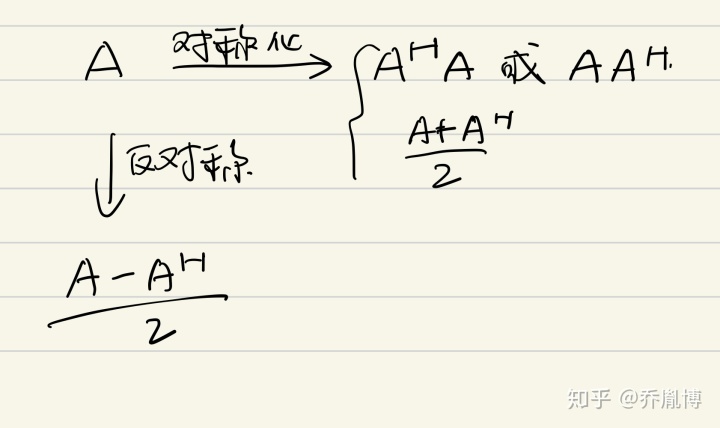 A 对称化 → { A^H A 或 A A^H.
(A + A^H) / 2
↓ 反对称.
(A - A^H) / 2
知乎 @乔胤博